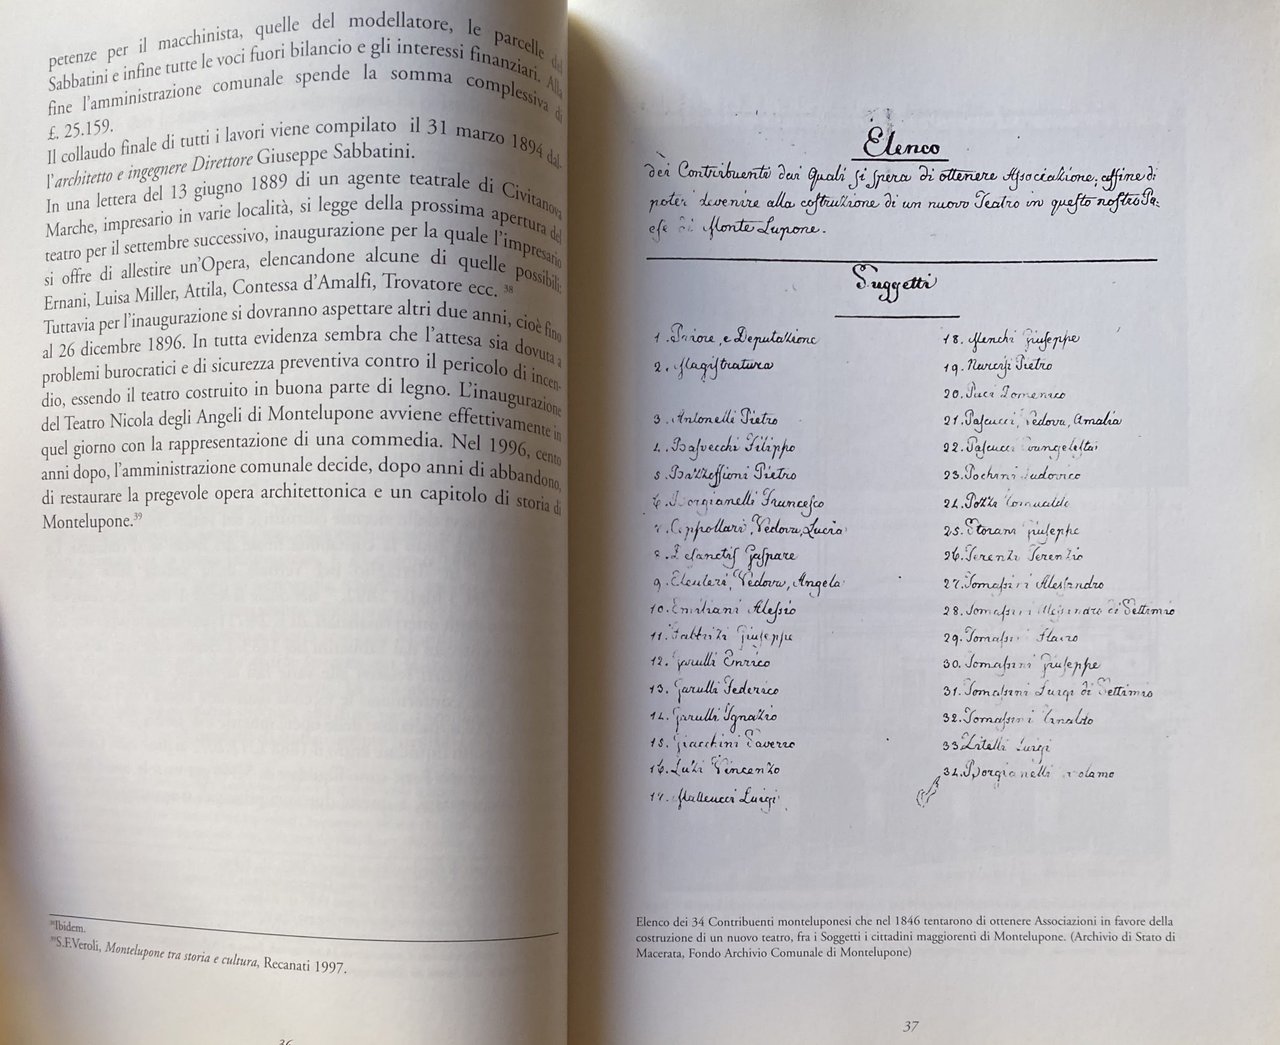 petenze per il macchinista, quelle del modellatore, le parcelle del
Sabbatini e infine tutte le voci fuori bilancio e gli interessi finanziari. Alla
fine l'amministrazione comunale spende la somma complessiva di
£. 25.159.
Il collaudo finale di tutti i lavori viene compilato il 31 marzo 1894 dal-
l'architetto e ingegnere Direttore Giuseppe Sabbatini.
In una lettera del 13 giugno 1889 di un agente teatrale di Civitanova
Marche, impresario in varie località, si legge della prossima apertura del
teatro per il settembre successivo, inaugurazione per la quale l'impresario
si offre di allestire un'Opera, elencandone alcune di quelle possibili:
Ernani, Luisa Miller, Attila, Contessa d'Amalfi, Trovatore ecc. 38
Tuttavia per l'inaugurazione si dovranno aspettare altri due anni, cioè fino
al 26 dicembre 1896. In tutta evidenza sembra che l'attesa sia dovuta a
problemi burocratici e di sicurezza preventiva contro il pericolo di incen-
dio, essendo il teatro costruito in buona parte di legno. L'inaugurazione
del Teatro Nicola degli Angeli di Montelupone avviene effettivamente in
quel giorno con la rappresentazione di una commedia. Nel 1996, cento
anni dopo, l'amministrazione comunale decide, dopo anni di abbandono,
di restaurare la pregevole opera architettonica e un capitolo di storia di
Montelupone.39
38Ibidem.
39S.F.Veroli, Montelupone tra storia e cultura, Recanati 1997.
36
Elenco
dei Contribuenti dai Quali si spera di ottenere Associazione, affine di
poter devenire alla costruzione di un nuovo Teatro in questo nostro Pa-
ese di Monte Lupone.
Suggetti
1. Priore, e Deputazione
2. Magistratura
3. Antonelli Pietro
4. Basvecchi Filippo
5. Bazzeffioni Pietro
6. Borgianelli Francesco
7. Cippollari, Vedova, Lucia
8. Desanctis Gaspare
9. Eleuteri, Vedova, Angela
10. Emiliani Alessio
11. Fabbrizi Giuseppe
12. Garulli Enrico
13. Garulli Federico
14. Garulli Ignazio
15. Giacchini Saverio
16. Luzi Vincenzo
17. Matteucci Luigi
18. Menchi Giuseppe
19. Narcisi Pietro
20. Paci Domenico
21. Pascucci, Vedova, Amalia
22. Pascucci Evangelista
23. Pochini Ludovico
24. Pozzi Romualdo
25. Storani Giuseppe
26. Terenzi Terenzio
27. Tomassini Alessandro
28. Tomassini Alessandro di Settimio
29. Tomassini Flavio
30. Tomassini Giuseppe
31. Tomassini Luigi di Settimio
32. Tomassini Rinaldo
33. Zitelli Luigi
34. Borgianelli Girolamo
Elenco dei 34 Contribuenti monteluponesi che nel 1846 tentarono di ottenere Associazioni in favore della
costruzione di un nuovo teatro, fra i Soggetti i cittadini maggiorenti di Montelupone. (Archivio di Stato di
Macerata, Fondo Archivio Comunale di Montelupone)
37